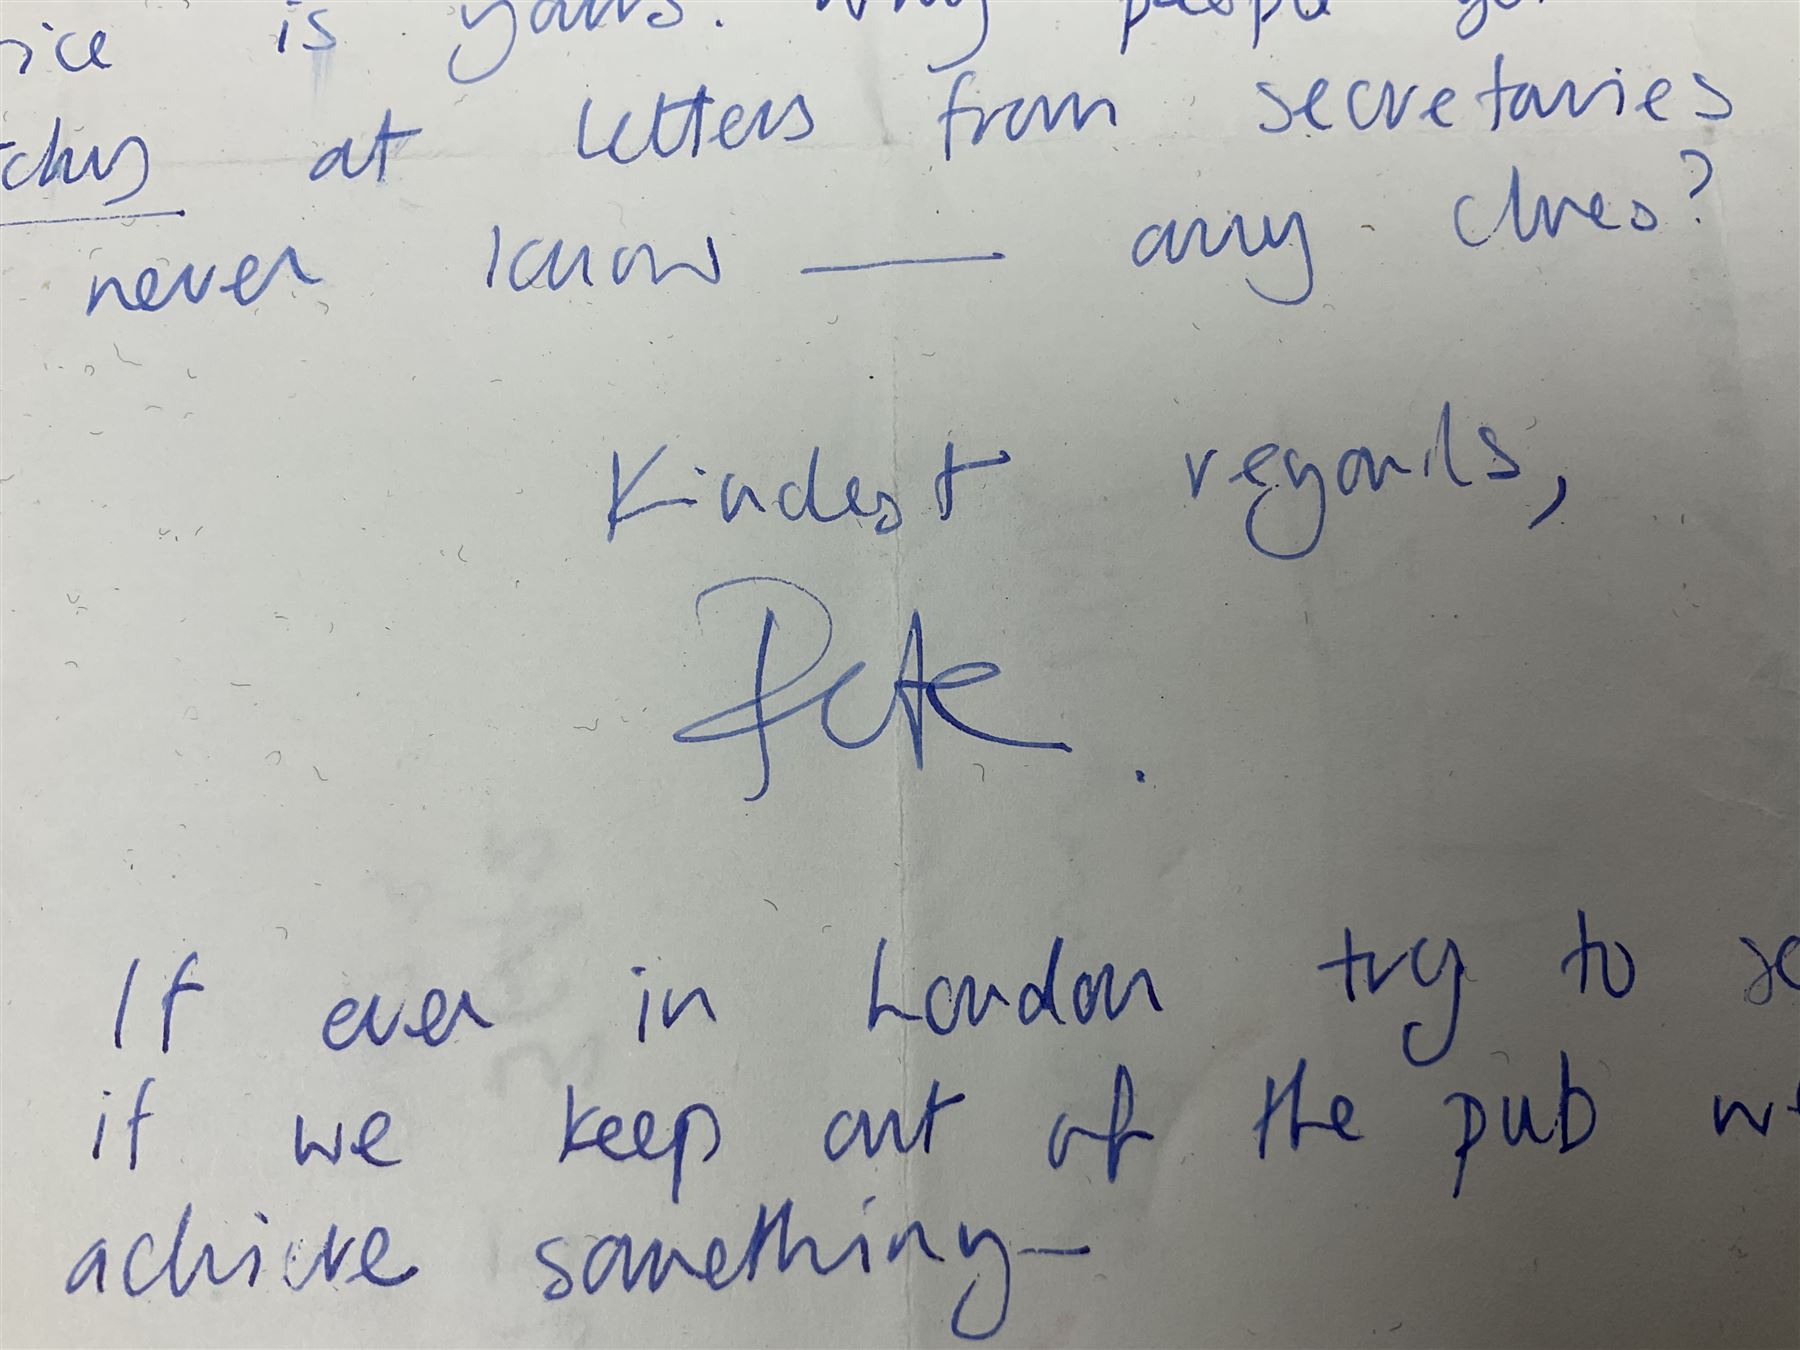 is yours. Why people
at letters from secretaries
never know — any clues?
Kindest regards,
Pete.
If ever in London try to
if we keep out of the pub
achieve something —